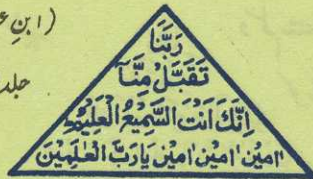 (ابنِ
جلد
رَبَّنَا
تَقَبَّلْ مِنَّآ
اِنَّكَ اَنْتَ السَّمِيْعُ الْعَلِيْمُ
اٰمِيْن اٰمِيْن اٰمِيْن يَارَبَّ الْعٰلَمِيْنَ